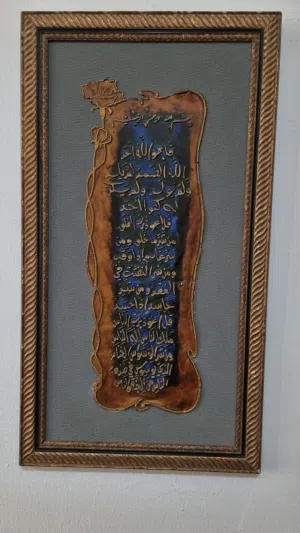 بسم الله الرحمن الرحيم
قل هو الله احد
الله الصمد لم يلد
ولم يولد ولم يكن
له كفوا احد
قل اعوذ برب الفلق
من شر ما خلق ومن
شر غاسق اذا وقب
ومن شر النفثت في
العقد ومن شر
حاسد اذا حسد
قل اعوذ برب الناس
ملك الناس اله الناس
من شر الوسواس الخناس
الذي يوسوس في صدور
الناس من الجنة والناس